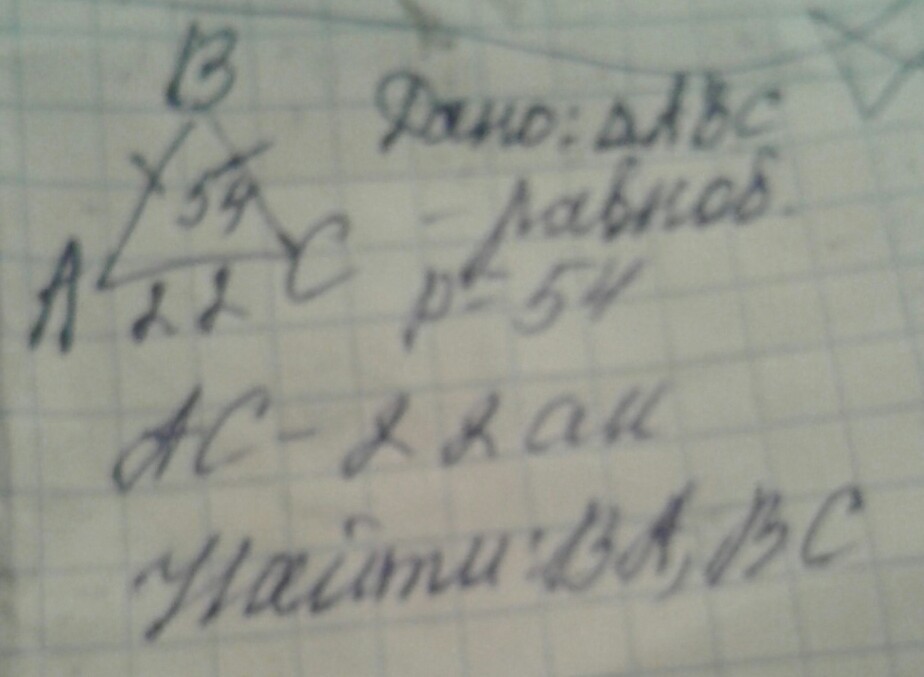 B
Дано: △ABC
54
- равноб.
A 22 C
P = 54
AC - 22 см
Найти: BA, BC